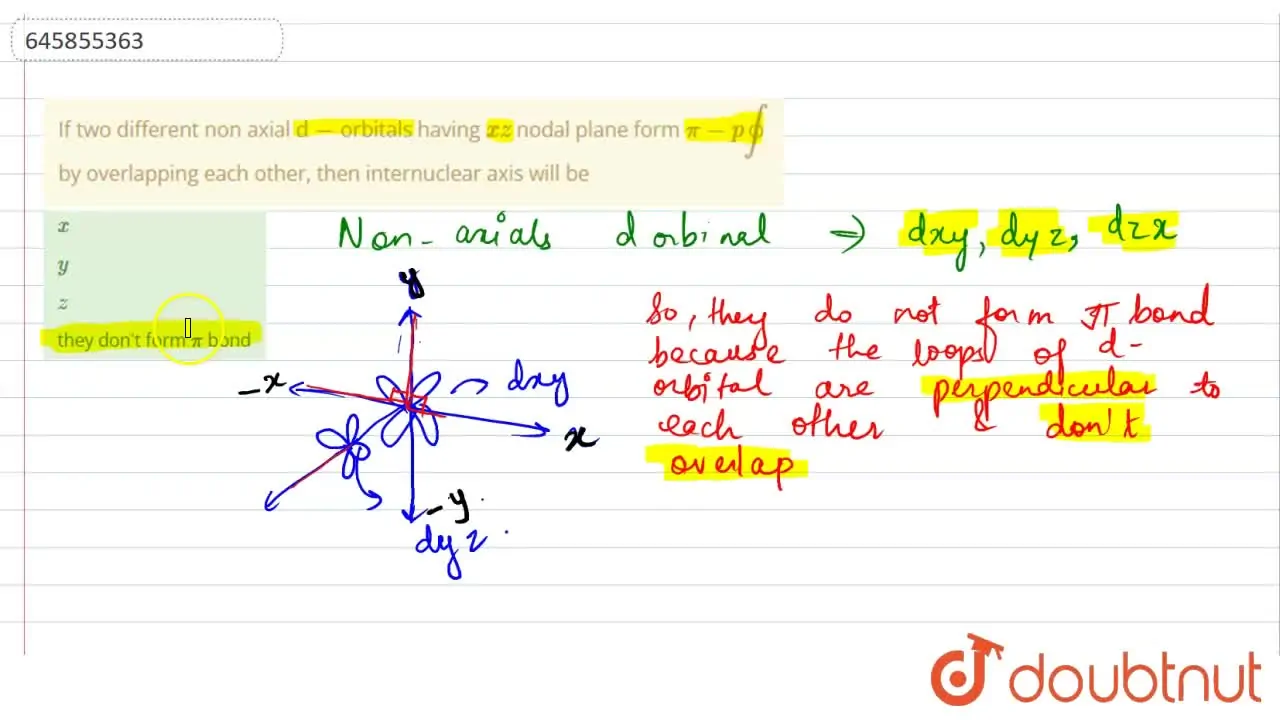 645855363
If two different non axial d − orbitals having xz nodal plane form π − p∮
by overlapping each other, then internuclear axis will be
x
y
z
they don't form π bond
Non-axials d orbinal → dxy, dyz, dzx
So, they do not form π bond
because the loops of d-
orbital are perpendicular to
each other & don't
overlap
y
-x
dxy
x
-y
dyz
doubtnut